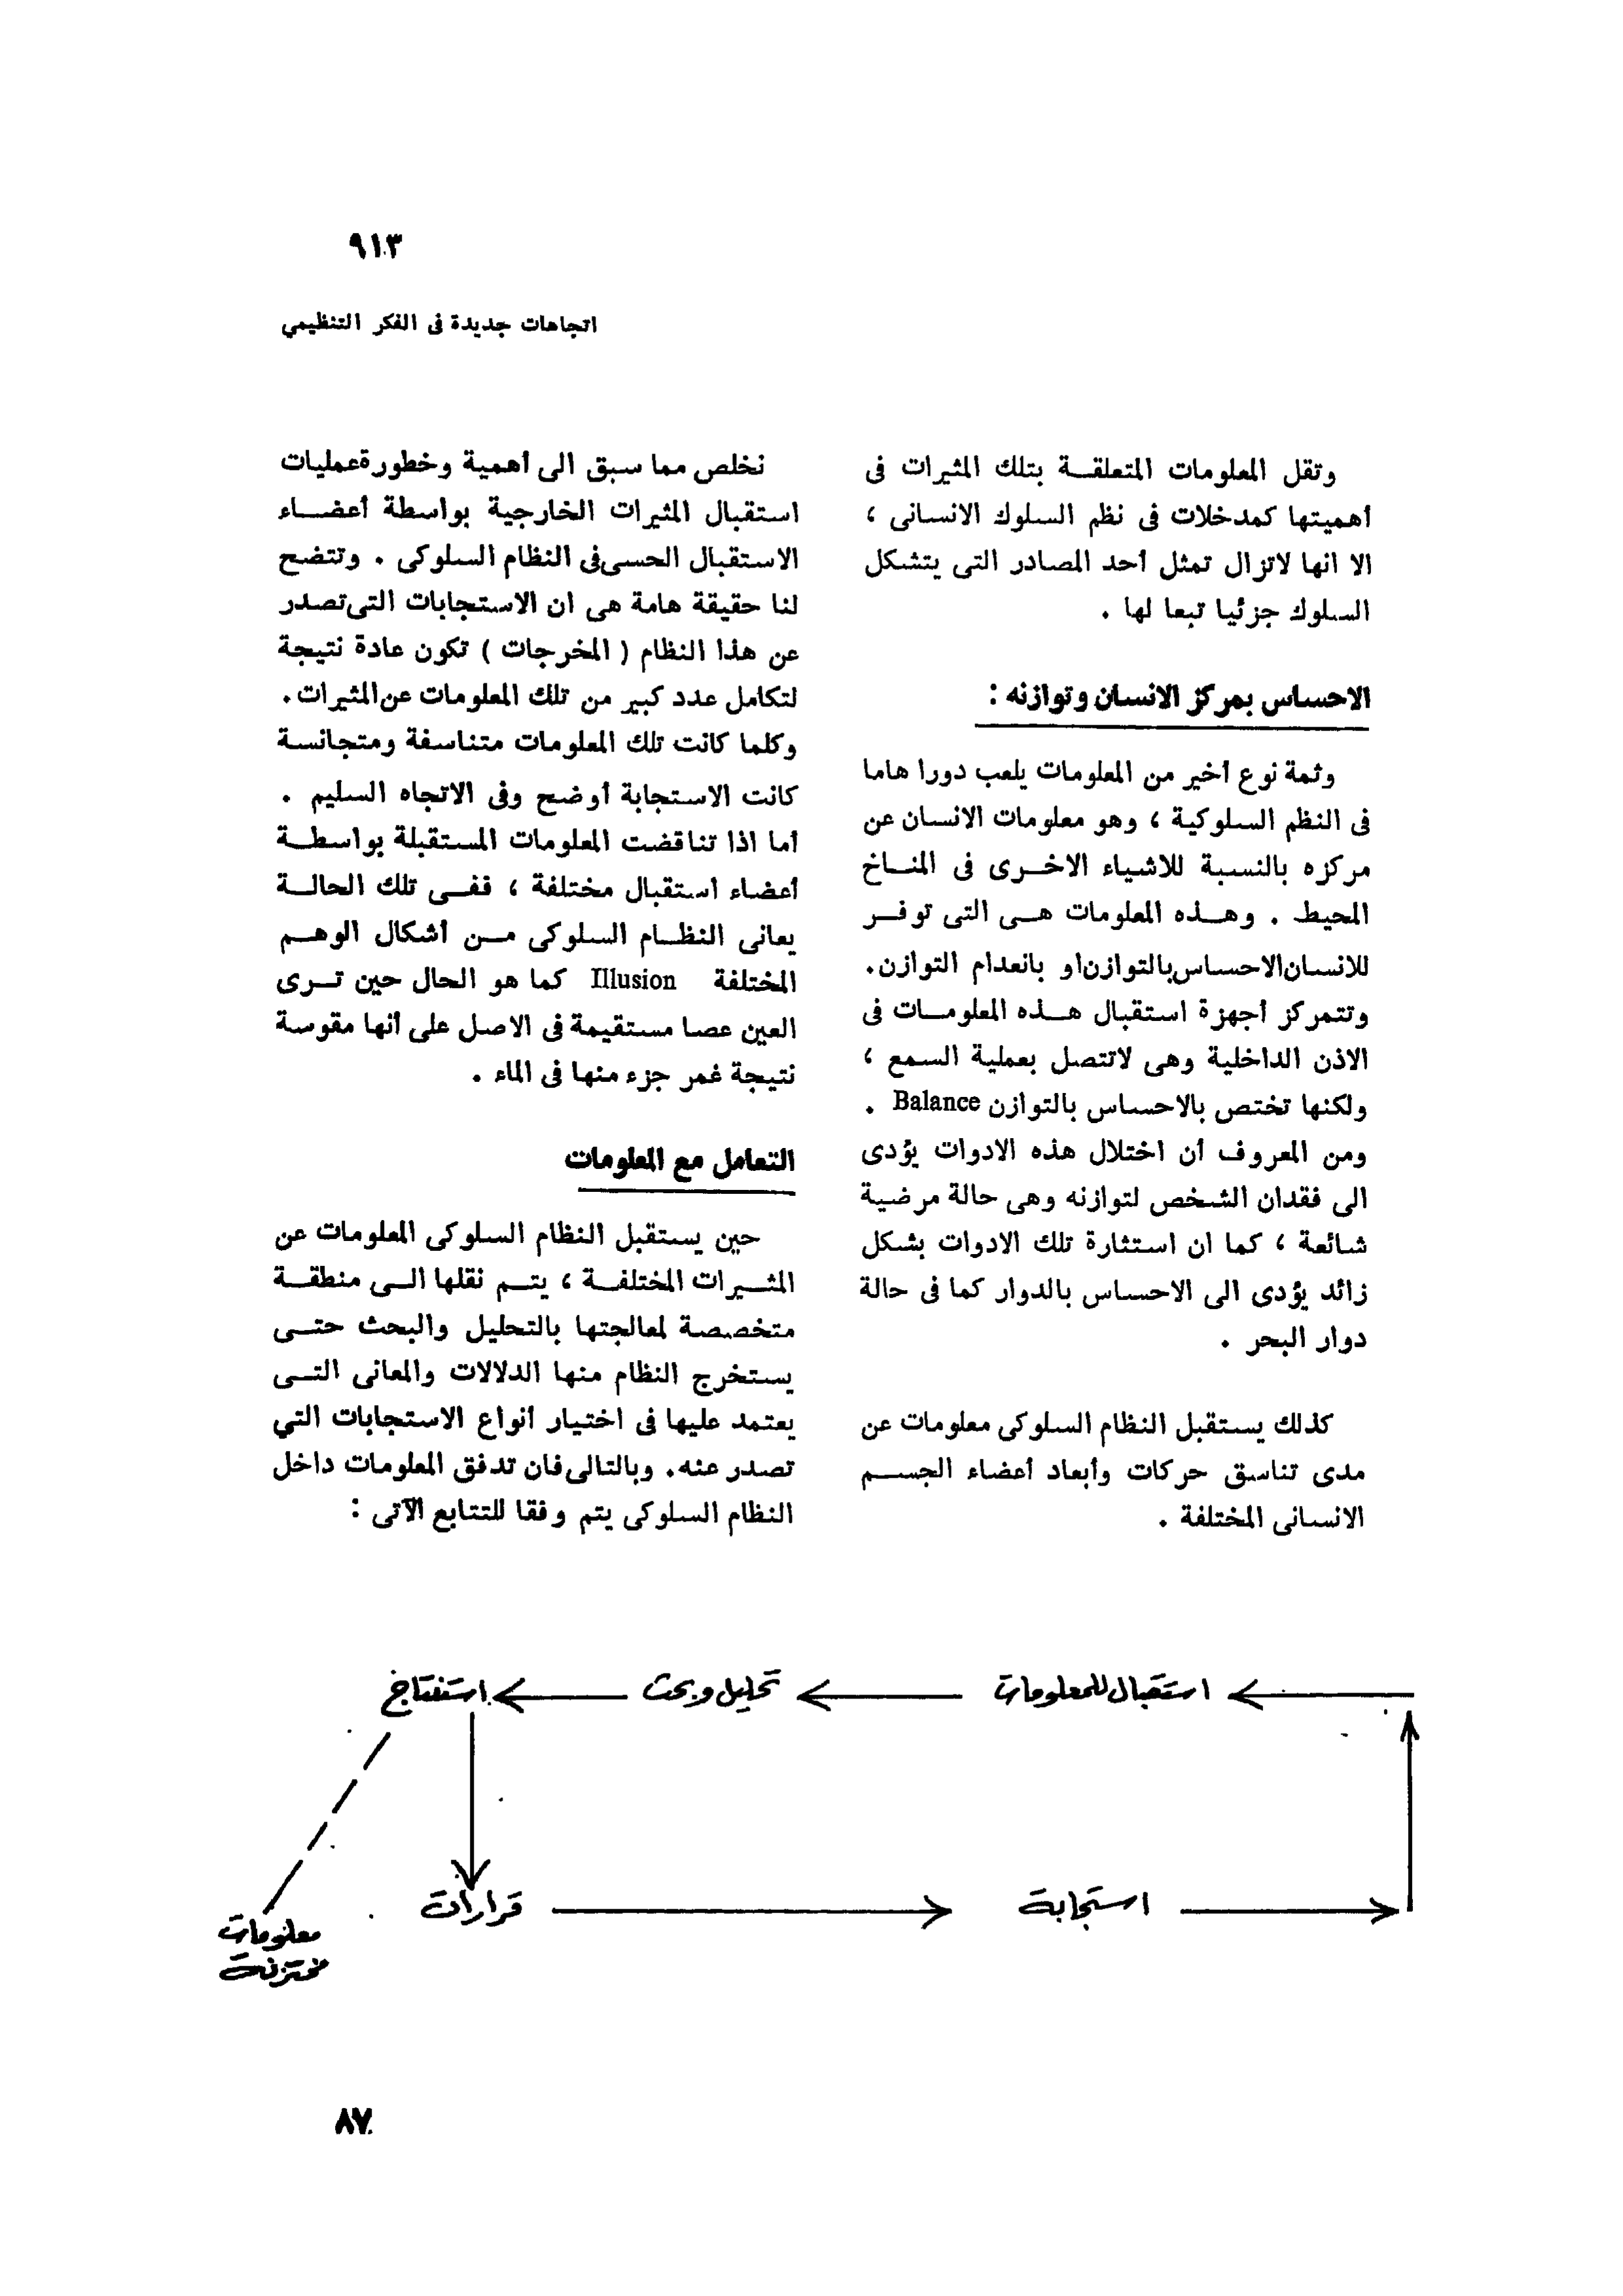 ٩١٣
اتجاهات جديدة فى الفكر التنظيمي
وتقل المعلومات المتعلقة بتلك المثيرات فى
أهميتها كمدخلات فى نظم السلوك الانسانى ،
الا انها لاتزال تمثل أحد المصادر التى يتشكل
السلوك جزئيا تبعا لها .
الاحساس بمركز الانسان وتوازنه :
وثمة نوع أخير من المعلومات يلعب دورا هاما
فى النظم السلوكية ، وهو معلومات الانسان عن
مركزه بالنسبة للاشياء الاخرى فى المناخ
المحيط . وهذه المعلومات هى التى توفر
للانسان الاحساس بالتوازن او بانعدام التوازن.
وتتمركز أجهزة استقبال هذه المعلومات فى
الاذن الداخلية وهى لاتتصل بعملية السمع ،
ولكنها تختص بالاحساس بالتوازن Balance .
ومن المعروف أن اختلال هذه الادوات يؤدى
الى فقدان الشخص لتوازنه وهى حالة مرضية
شائعة ، كما ان استثارة تلك الادوات بشكل
زائد يؤدى الى الاحساس بالدوار كما فى حالة
دوار البحر .
كذلك يستقبل النظام السلوكى معلومات عن
مدى تناسق حركات وأبعاد أعضاء الجسم
الانسانى المختلفة .
نخلص مما سبق الى أهمية وخطورة عمليات
استقبال المثيرات الخارجية بواسطة أعضاء
الاستقبال الحسى فى النظام السلوكى . وتتضح
لنا حقيقة هامة هى ان الاستجابات التى تصدر
عن هذا النظام ( المخرجات ) تكون عادة نتيجة
لتكامل عدد كبير من تلك المعلومات عن المثيرات.
وكلما كانت تلك المعلومات متناسفة ومتجانسة
كانت الاستجابة أوضح وفى الاتجاه السليم .
أما اذا تناقضت المعلومات المستقبلة بواسطة
أعضاء استقبال مختلفة ، ففى تلك الحالة
يعانى النظام السلوكى من أشكال الوهم
المختلفة Illusion كما هو الحال حين ترى
العين عصا مستقيمة فى الاصل على أنها مقوسة
نتيجة غمر جزء منها فى الماء .
التعامل مع المعلومات
حين يستقبل النظام السلوكى المعلومات عن
المثيرات المختلفة ، يتم نقلها الى منطقة
متخصصة لمعالجتها بالتحليل والبحث حتى
يستخرج النظام منها الدلالات والمعانى التى
يعتمد عليها فى اختيار أنواع الاستجابات التي
تصدر عنه. وبالتالى فان تدفق المعلومات داخل
النظام السلوكى يتم وفقا للتتابع الآتى :
استقبال للمعلومات
تحليل وبحث
استنتاج
قرارات
استجابة
معلومات
مختزنة
٨٧